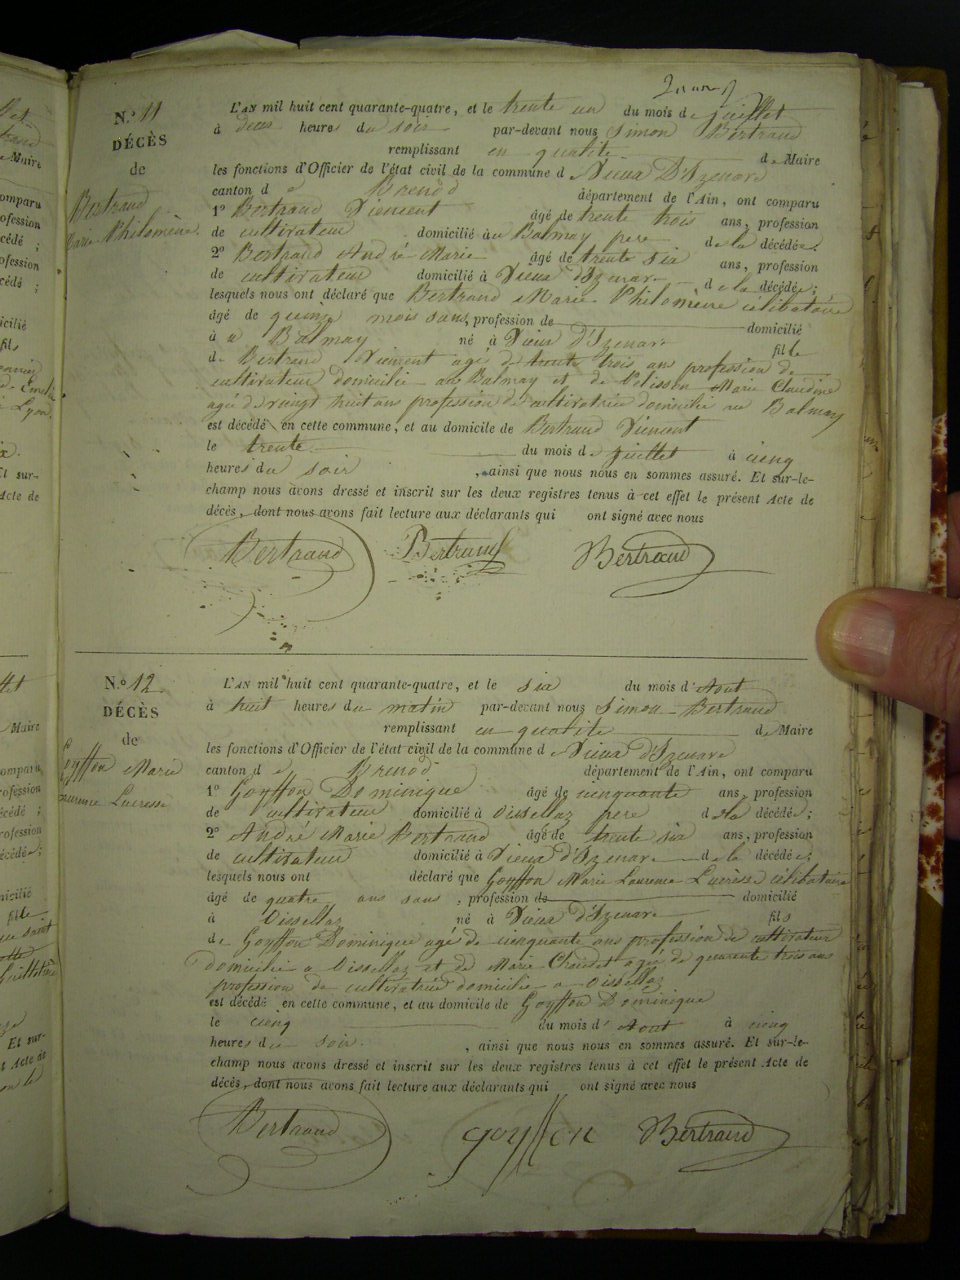 N.o 11
DÉCÈS
de
Bertrand
Marie Philomène
L'AN mil huit cent quarante-quatre, et le trente un du mois de juillet
à deux heures du soir par-devant nous Simon Bertrand
remplissant en qualité de Maire
les fonctions d'Officier de l'état civil de la commune d Vieux D'Izenave
canton d e Brenod département de l'Ain, ont comparu
1o Bertrand Vincent âgé de trente trois ans, profession
de cultivateur domicilié au Balmay pere de la décédée
2o Bertrand André Marie âgé de trente six ans, profession
de cultivateur domicilié à Vieux d'Izenave de la décédée;
lesquels nous ont déclaré que Bertrand Marie Philomène célibataire
âgé de quinze mois sans, profession de domicilié
à a Balmay né à Vieux d'Izenave fille
de Bertrand Vincent agé de trente trois ans profession de
cultivateur domicilié au Balmay et de Pelisson Marie Claudine
agé de vingt huit ans profession de cultivatrice domicilié au Balmay
est décédé en cette commune, et au domicile de Bertrand Vincent
le trente du mois de juillet à cinq
heures du soir, ainsi que nous nous en sommes assuré. Et sur-le-
champ nous avons dressé et inscrit sur les deux registres tenus à cet effet le présent Acte de
décès, dont nous avons fait lecture aux déclarants qui ont signé avec nous
Bertrand Bertrand Bertrand
N.o 12
DÉCÈS
de
Goyffon Marie
Laurence Lucresse
L'AN mil huit cent quarante-quatre, et le six du mois d'Aout
à huit heures du matin par-devant nous Simon Bertrand
remplissant en qualité de Maire
les fonctions d'Officier de l'état civil de la commune d Vieux d'Izenave
canton d e Brenod département de l'Ain, ont comparu
1o Goyffon Dominique âgé de cinquante ans, profession
de cultivateur domicilié à Oissellaz pere de la décédé;
2o André Marie Bertrand âgé de trente six ans, profession
de cultivateur domicilié à Vieux d'Izenave de la décédée;
lesquels nous ont déclaré que Goyffon Marie Laurence Lucresse célibataire
âgé de quatre ans sans, profession de domicilié
à Oissellaz né à Vieux d'Izenave fils
de Goyffon Dominique agé de cinquante ans profession de cultivateur
domicilié a Oissellaz et de Marie agée de quarante trois ans
profession de cultivatrice domicilié a Oissellaz
est décédé en cette commune, et au domicile de Goyffon Dominique
le cinq du mois d'Aout à cinq
heures du soir, ainsi que nous nous en sommes assuré. Et sur-le-
champ nous avons dressé et inscrit sur les deux registres tenus à cet effet le présent Acte de
décès, dont nous avons fait lecture aux déclarants qui ont signé avec nous
Bertrand goyffon Bertrand